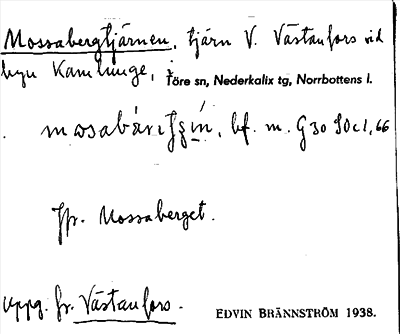 Mossabergtjärnen, tjärn V. Västanfors vid
byn Kamlunge, i Töre sn, Nederkalix tg, Norrbottens l.
bf. m. G 30 SO c 1, 66
Jfr. Mossaberget.
Uppg. fr. Västanfors.
EDVIN BRÄNNSTRÖM 1938.